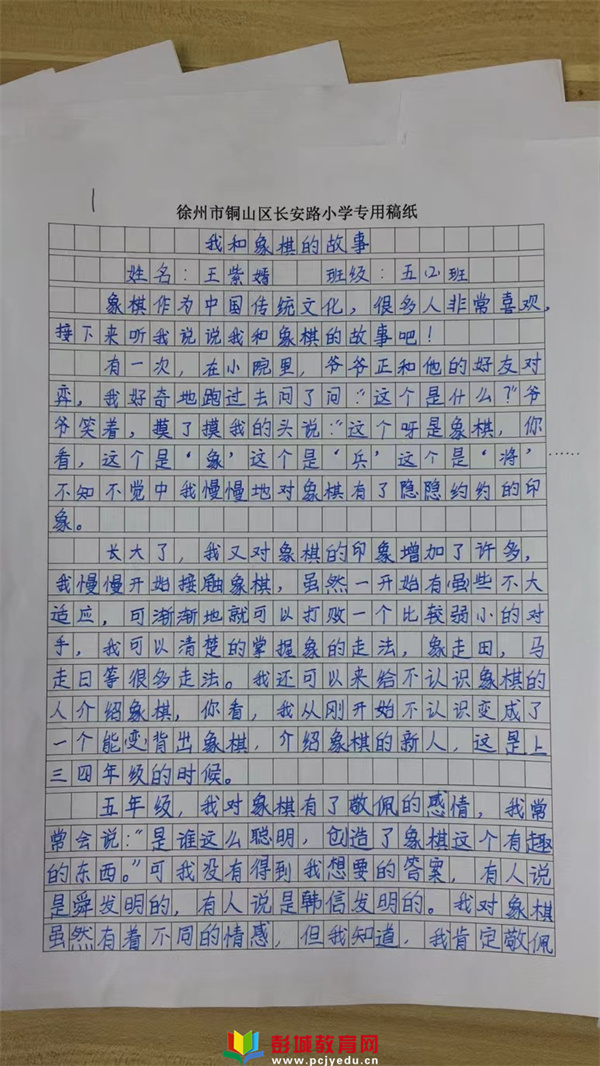 徐州市铜山区长安路小学专用稿纸
我和象棋的故事
姓名：王紫婧 班级：五(2)班
象棋作为中国传统文化，很多人非常喜观，
接下来听我说说我和象棋的故事吧！
有一次，在小院里，爷爷正和他的好友对
弈，我好奇地跑过去问了问：“这个是什么？”爷
爷笑着，摸了摸我的头说：“这个呀是象棋，你
看，这个是‘象’这个是‘兵’这个是‘将’……
不知不觉中我慢慢地对象棋有了隐隐约约的印
象。
长大了，我又对象棋的印象增加了许多，
我慢慢开始接触象棋，虽然一开始有些不大
适应，可渐渐地就可以打败一个比较弱小的对
手，我可以清楚的掌握象的走法，象走田，马
走日等很多走法。我还可以来给不认识象棋的
人介绍象棋，你看，我从刚开始不认识变成了
一个能变背出象棋，介绍象棋的新人，这是上
三四年级的时候。
五年级，我对象棋有了敬佩的感情，我常
常会说：“是谁这么聪明，创造了象棋这个有趣
的东西。”可我没有得到我想要的答案，有人说
是舜发明的，有人说是韩信发明的。我对象棋
虽然有着不同的情感，但我知道，我肯定敬佩
彭城教育网
www.pcjyedu.cn